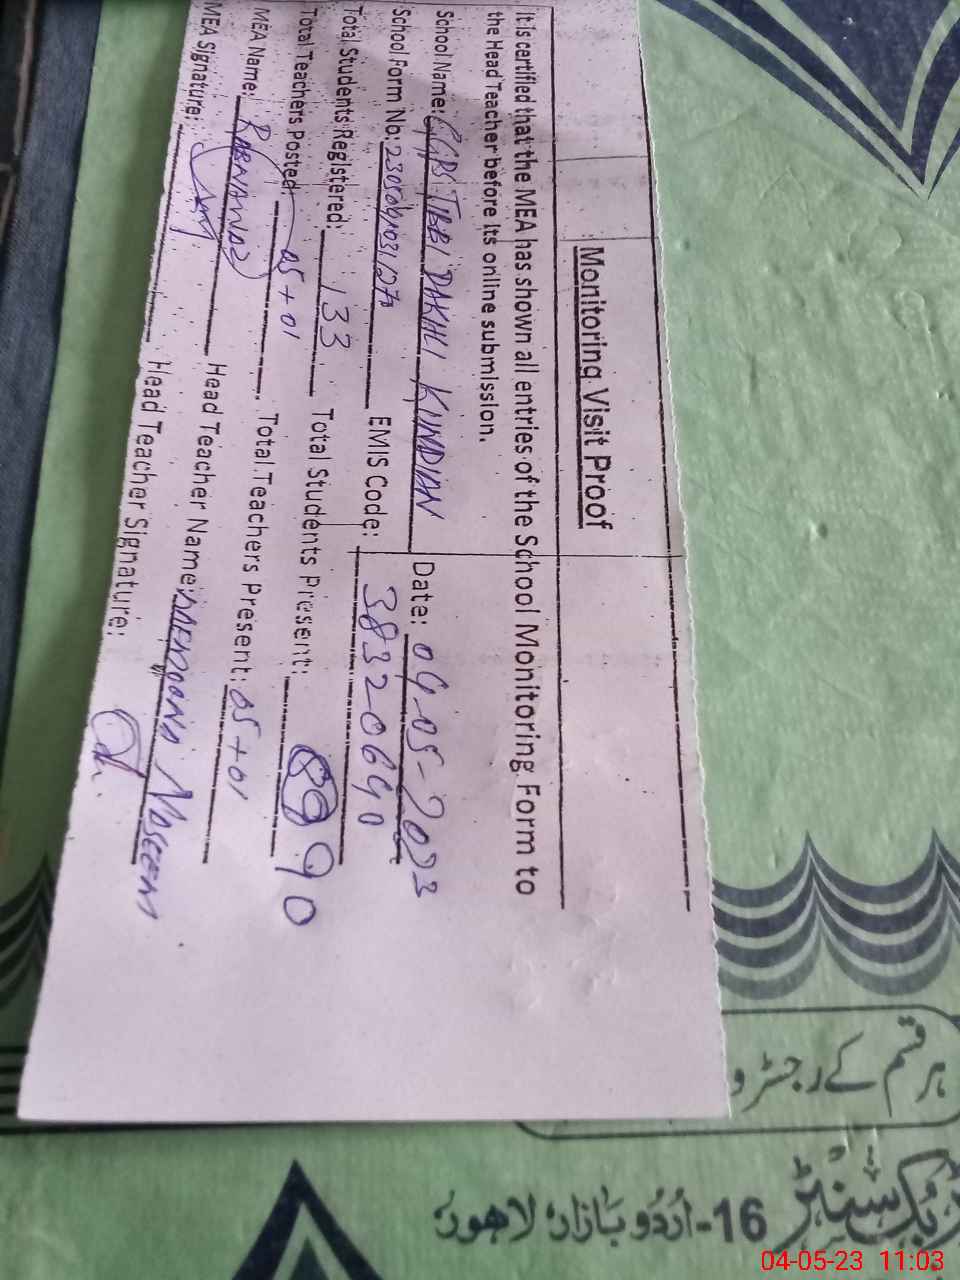 Monitoring Visit Proof
It is certified that the MEA has shown all entries of the School Monitoring Form to
the Head Teacher before its online submission.
School Name: GGPS TIBBI DAKHLI KUNDIAN Date: 04-05-2023
School Form No: EMIS Code: 38320640
Total Students Registered: 133 Total Students Present: 90
Total Teachers Posted 05+01 Total Teachers Present: 05+01
MEA Name: RABNAWAZ Head Teacher Name: MAEMOONA NASEEM
MEA Signature: Head Teacher Signature:
ہر قسم کے رجسٹر و
بک سنٹر 16-اُردو بازار، لاہور
04-05-23 11:03